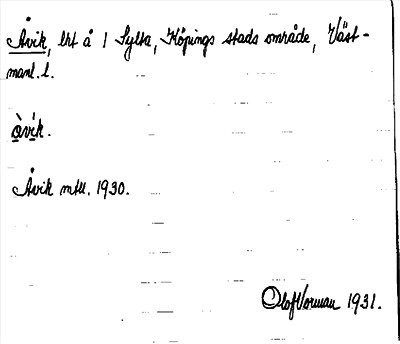 Åvik, lht å 1 Sylta, Köpings stads område, Väst-
manl. l.
ὰvi̇k.
Åvik mtll. 1930.
Olof Vorrman 1931.